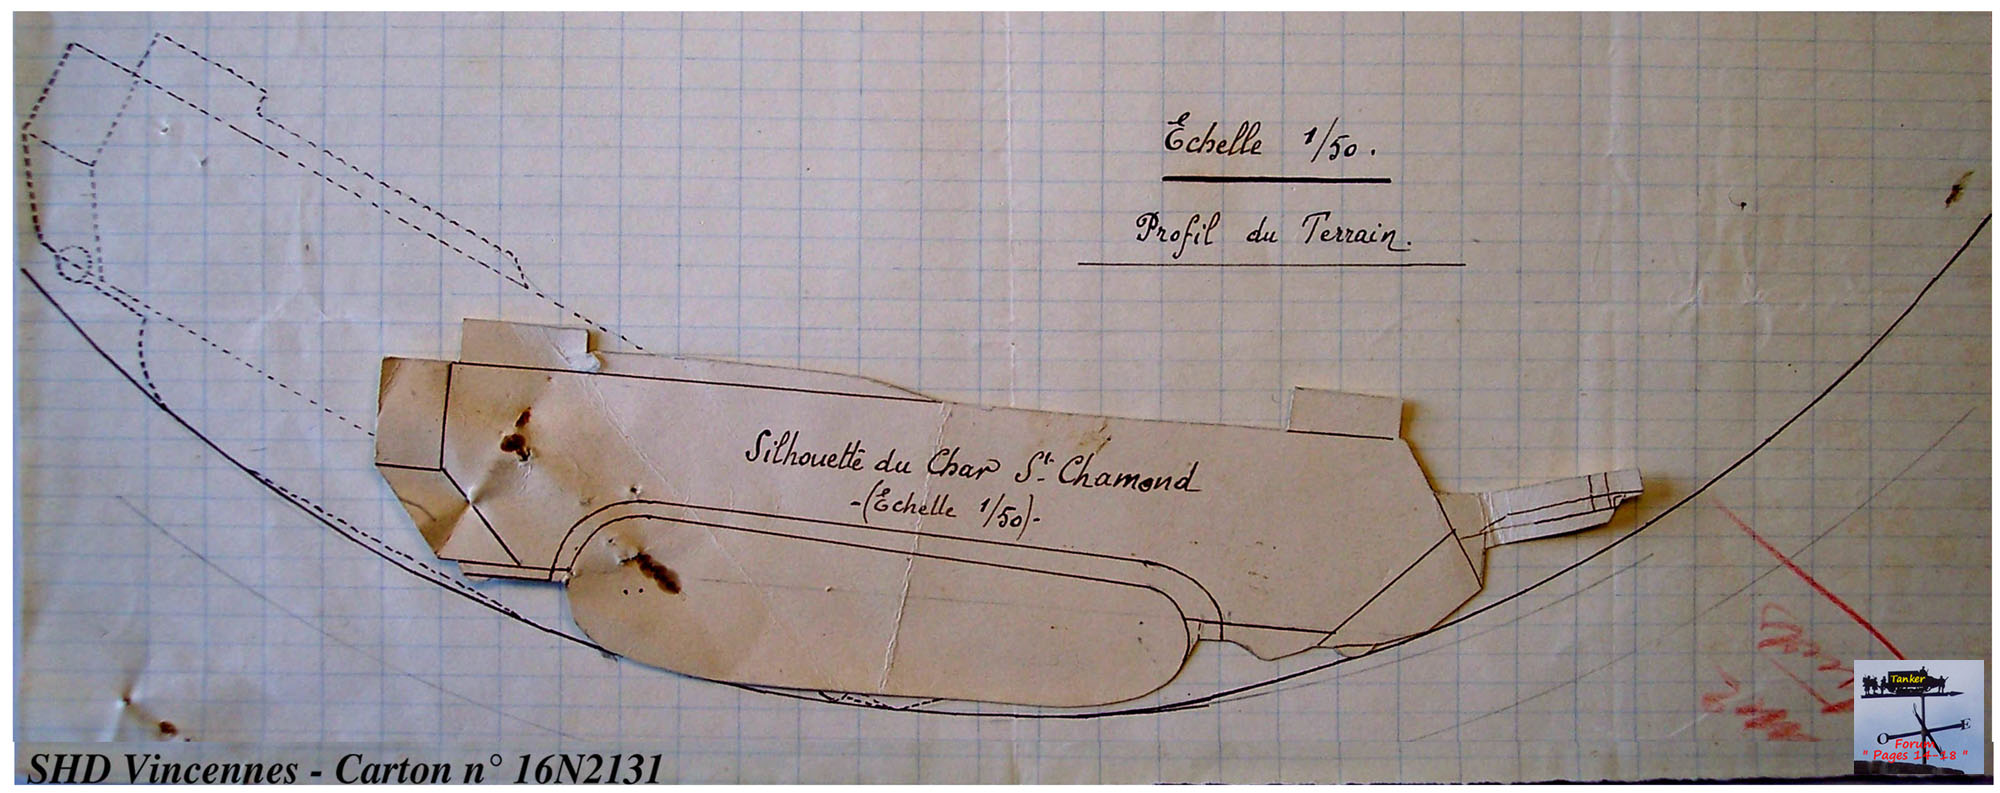 Echelle 1/50.
Profil du Terrain.
Silhouette du Char St. Chamond
-(Echelle 1/50)-
SHD Vincennes - Carton n° 16N2131
Tanker
O E
Forum
" Pages 14-18 "